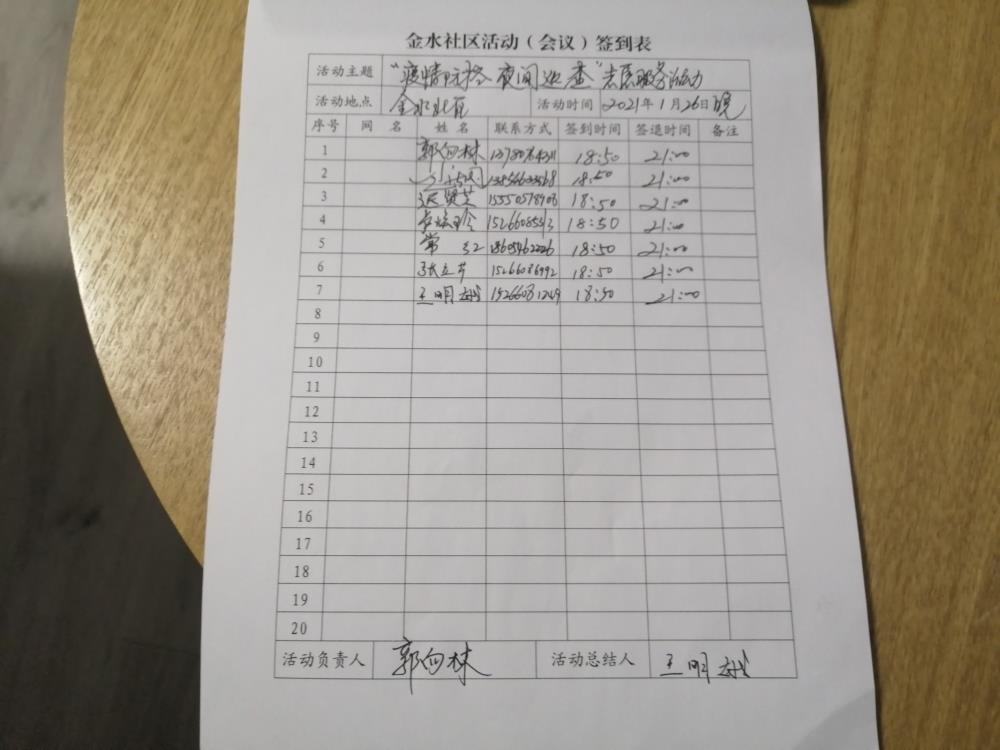 金水社区活动（会议）签到表
活动主题 "疫情防控 夜间巡查"志愿服务活动
活动地点 金水社区 活动时间 2021年1月26日晚
序号 网名 姓名 联系方式 签到时间 签退时间 备注
1 郭向林 18:50 21:00
2 18:50 21:00
3 张贤芝 15550578908 18:50 21:00
4 18:50 21:00
5 常红 18605462226 18:50 21:00
6 张立芹 15266086992 18:50 21:00
7 王明 15266081249 18:50 21:00
8
9
10
11
12
13
14
15
16
17
18
19
20
活动负责人 郭向林 活动总结人 王明